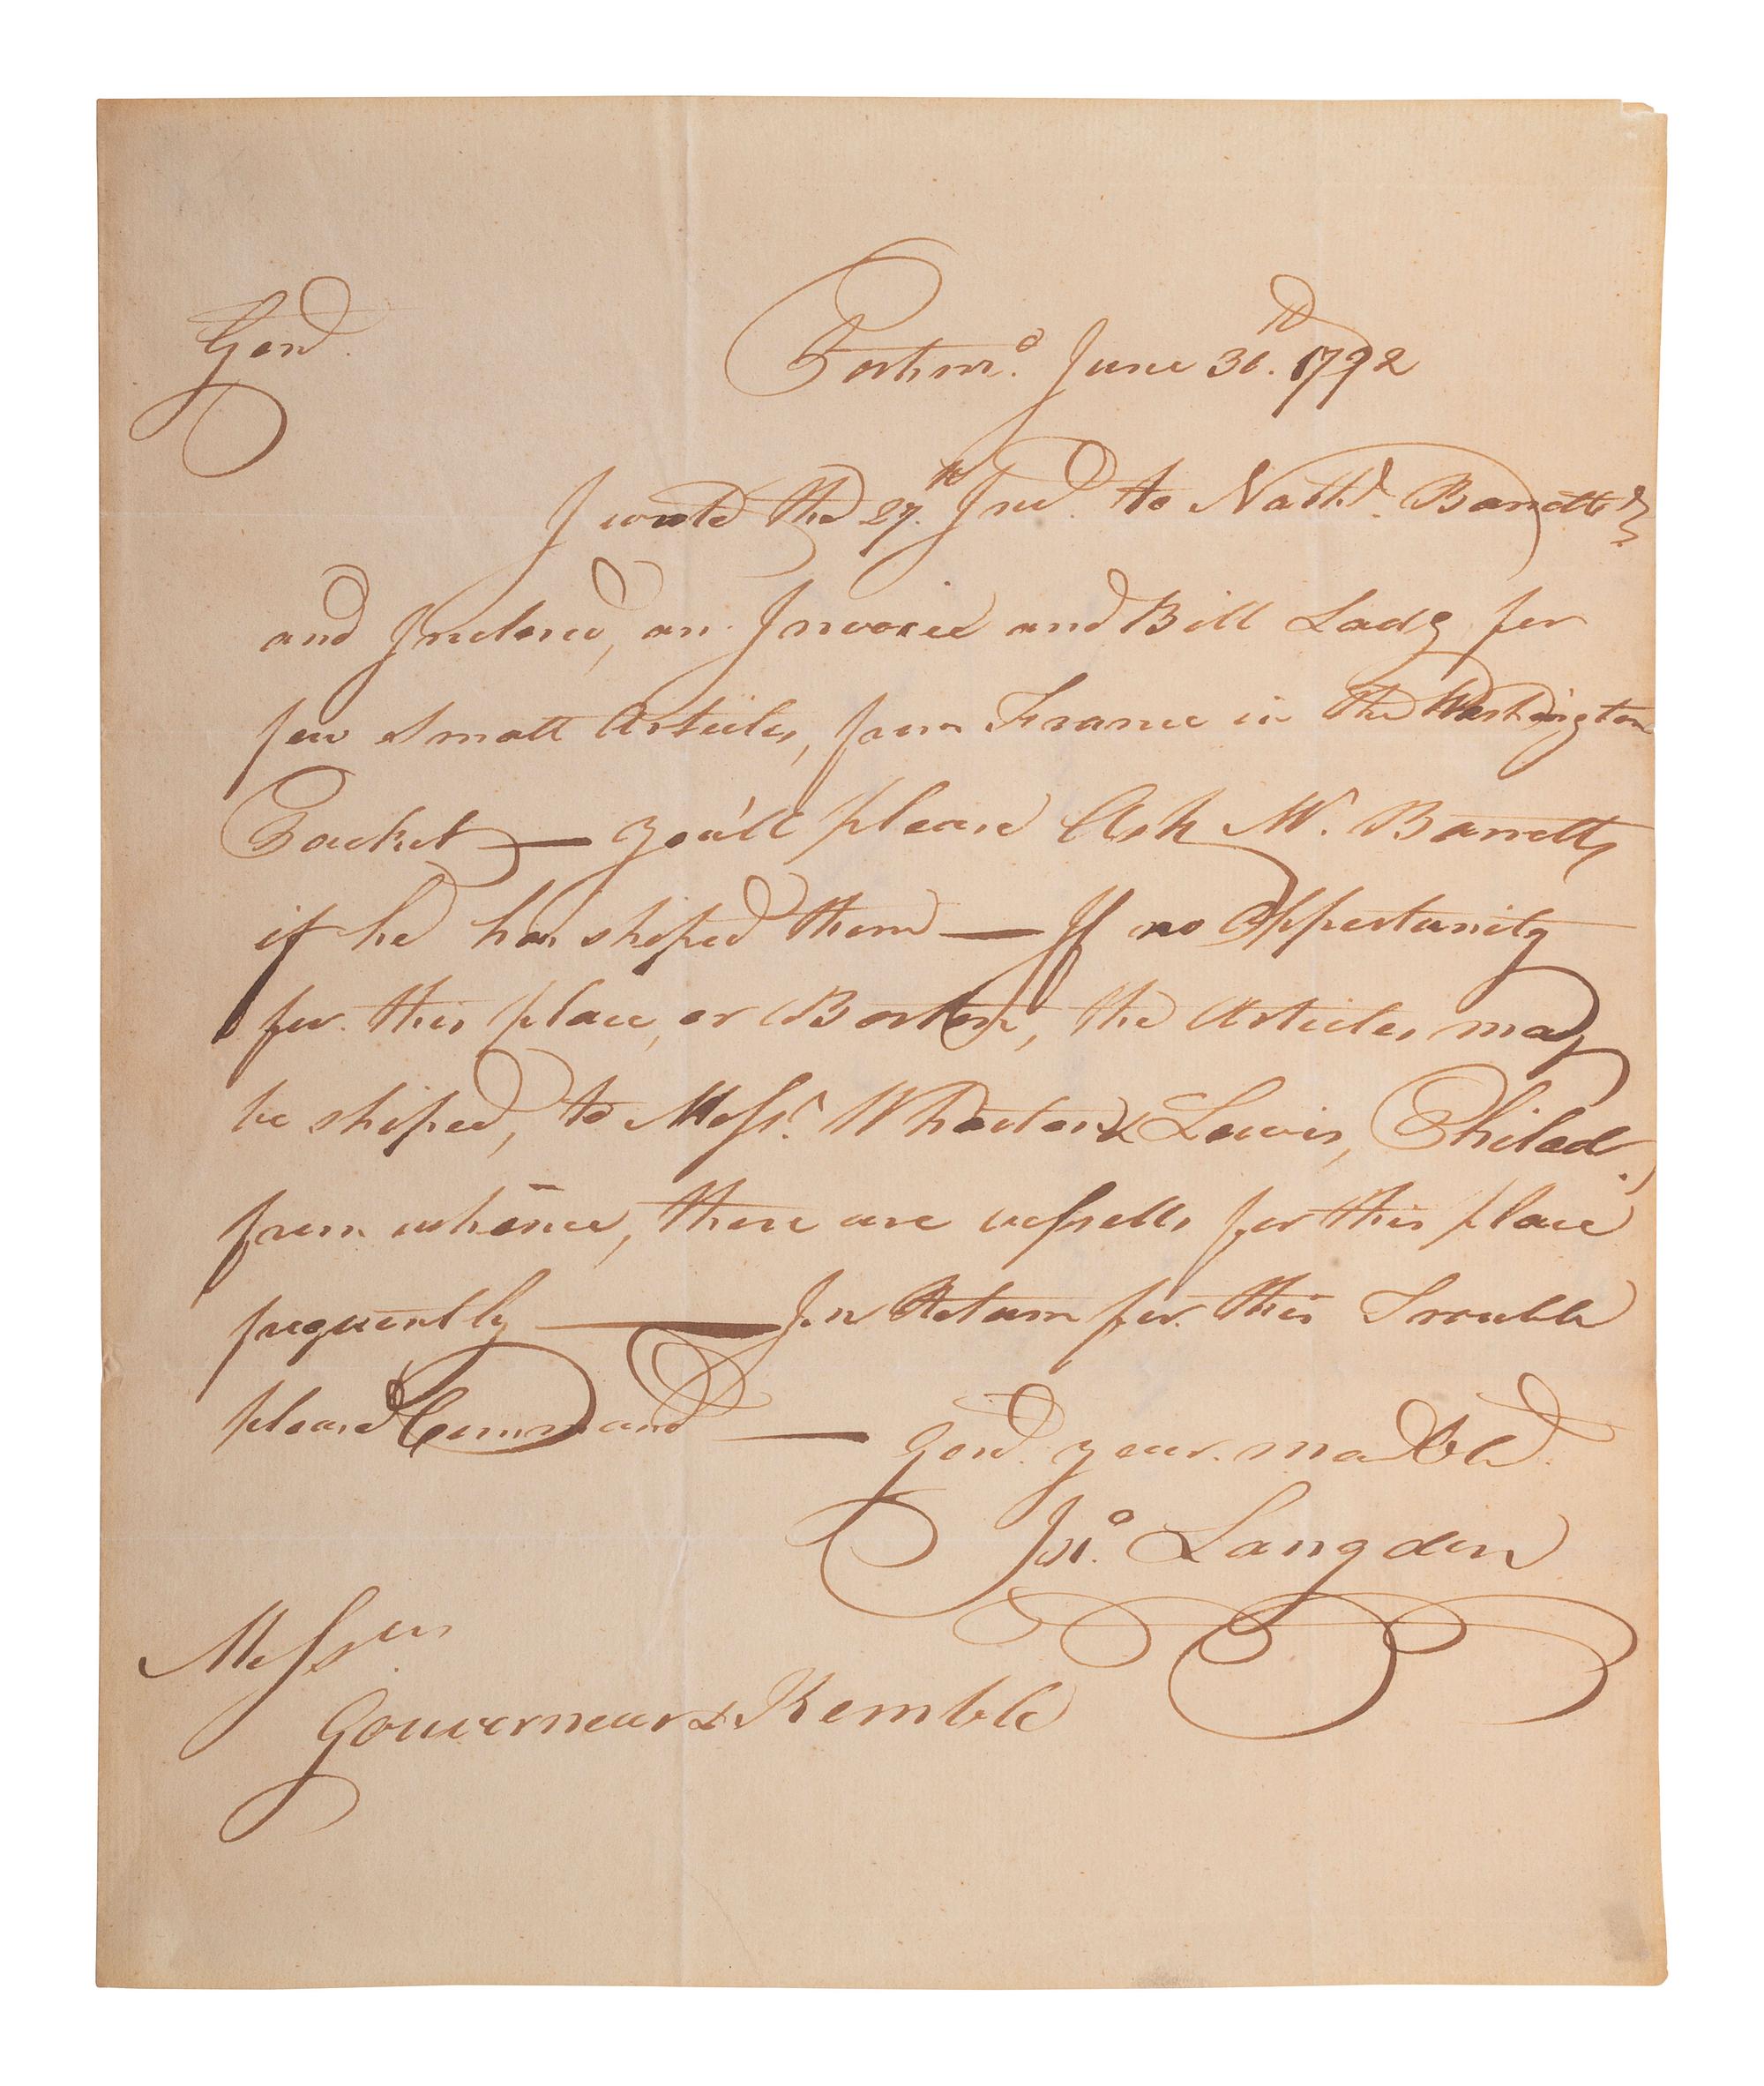 Gent.
Portsmo. June 30. th 1792
I wrote the 27. th Inst. to Nathl. Barrett Esq
and Inclosed, an Invoice and Bill Ladg for
few small Articles, from France in the Washington
Packet — you'll please Ask Mr. Barrett,
if he has shiped them — If no Oppertunity
for this place, or Boston, the Articles may
be shiped, to Messrs. Wharton & Lewis, Philad.,
from whence, there are vessells for this place
frequently — In Return for this Trouble
please Command — Gent. your mo Obt.
Jno. Langdon
Messrs
Gouverneur & Kemble